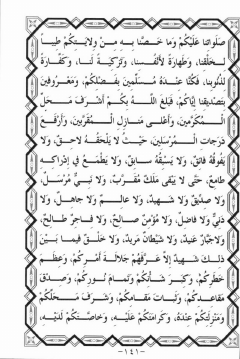 صَلَواتَنا عَلَيْكُمْ وَما خَصَّنا بِهِ مِنْ وِلايَتِكُمْ طيباً
لِخَلْقِنا، وَطَهارَةً لأَنْفُسِنا، وَتَزْكِيَةً لَنا، وَكَفّارَةً
لِذُنُوبِنا، فَكُنّا عِنْدَهُ مُسَلِّمينَ بِفَضْلِكُمْ، وَمَعْرُوفينَ
بِتَصْديقِنا إِيّاكُمْ، فَبَلَغَ اللهُ بِكُمْ أَشْرَفَ مَحَلِّ
الْمُكَرَّمينَ، وَأَعْلى مَنازِلِ الْمُقَرَّبينَ، وَأَرْفَعَ
دَرَجاتِ الْمُرْسَلينَ، حَيْثُ لا يَلْحَقُهُ لاحِقٌ، وَلا
يَفُوقُهُ فائِقٌ، وَلا يَسْبِقُهُ سابِقٌ، وَلا يَطْمَعُ في إِدْراكِهِ
طامِعٌ، حَتّى لا يَبْقى مَلَكٌ مُقَرَّبٌ، وَلا نَبِيٌّ مُرْسَلٌ،
وَلا صِدّيقٌ وَلا شَهيدٌ، وَلا عالِمٌ وَلا جاهِلٌ، وَلا
دَنِيٌّ وَلا فاضِلٌ، وَلا مُؤْمِنٌ صالِحٌ، وَلا فاجِرٌ طالِحٌ،
وَلاجَبّارٌ عَنيدٌ، وَلا شَيْطانٌ مَريدٌ، وَلا خَلْقٌ فيما بَيْنَ
ذلِكَ شَهيدٌ إِلاّ عَرَّفَهُمْ جَلالَةَ أَمْرِكُمْ، وَعِظَمَ
خَطَرِكُمْ، وَكِبَرَ شَأْنِكُمْ وَتَمامَ نُورِكُمْ، وَصِدْقَ
مَقاعِدِكُمْ، وَثَباتَ مَقامِكُمْ، وَشَرَفَ مَحَلِّكُمْ
وَمَنْزِلَتِكُمْ عِنْدَهُ، وَكَرامَتَكُمْ عَلَيْهِ، وَخاصَّتَكُمْ لَدَيْهِ،
-١٤١-